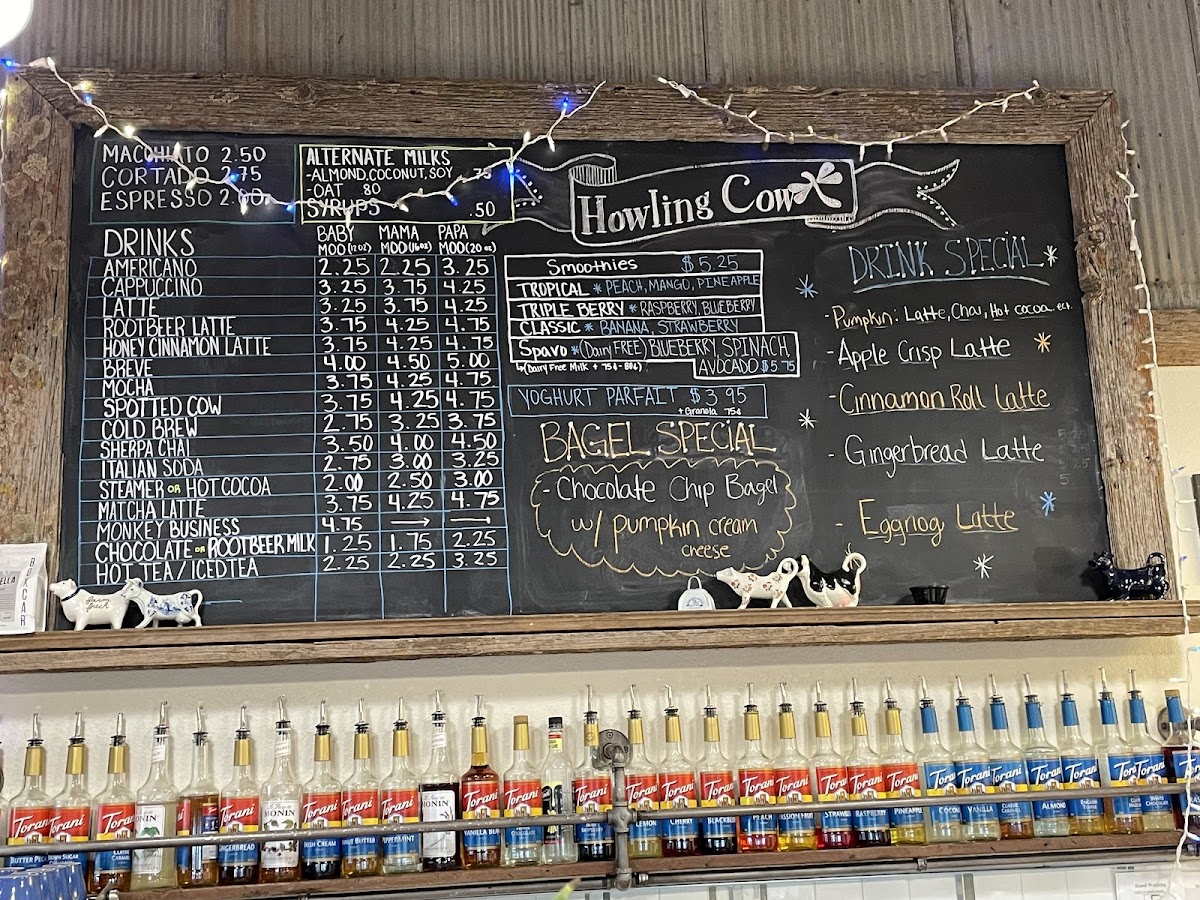 MACCHIATO 2.50
CORTADO 2.75
ESPRESSO 2.00
ALTERNATE MILKS
-ALMOND, COCONUT, SOY .75
-OAT 80
SYRUPS .50
Howling Cow
DRINKS BABY MOD (12oz) MAMA MOD (16oz) PAPA MOD (20oz)
AMERICANO 2.25 2.25 3.25
CAPPUCCINO 3.25 3.75 4.25
LATTE 3.25 3.75 4.25
ROOTBEER LATTE 3.75 4.25 4.75
HONEY CINNAMON LATTE 3.75 4.25 4.75
BREVE 4.00 4.50 5.00
MOCHA 3.75 4.25 4.75
SPOTTED COW 3.75 4.25 4.75
COLD BREW 2.75 3.25 3.75
SHERPA CHAI 3.50 4.00 4.50
ITALIAN SODA 2.75 3.00 3.25
STEAMER OR HOT COCOA 2.00 2.50 3.00
MATCHA LATTE 3.75 4.25 4.75
MONKEY BUSINESS 4.75 → →
CHOCOLATE OR ROOTBEER MILK 1.25 1.75 2.25
HOT TEA / ICED TEA 2.25 2.25 3.25
Smoothies $5.25
TROPICAL * PEACH, MANGO, PINEAPPLE
TRIPLE BERRY * RASPBERRY, BLUEBERRY
CLASSIC * BANANA, STRAWBERRY
Spavo * (Dairy FREE) BLUEBERRY, SPINACH,
AVOCADO $5.75
(Dairy Free Milk + 75¢-80¢)
YOGHURT PARFAIT $3.95
+ Granola 75¢
BAGEL SPECIAL
- Chocolate Chip Bagel
w/ pumpkin cream
cheese
DRINK SPECIAL
- Pumpkin: Latte, Chai, Hot cocoa ect.
- Apple Crisp Latte
- Cinnamon Roll Latte
- Gingerbread Latte
- Eggnog Latte
BOXCAR
farm fresh
Torani Torani Torani MONIN Torani MONIN Torani Torani Torani MONIN Torani Torani Torani Torani Torani Torani Torani Torani Torani Torani Torani Torani Torani Torani Torani Torani Torani Torani
GINGERBREAD IRISH CREAM VANILLA LEMON CHERRY PEACH PASSION FRUIT RASPBERRY PINEAPPLE VANILLA CLASSIC ALMOND WHITE CHOCOLATE